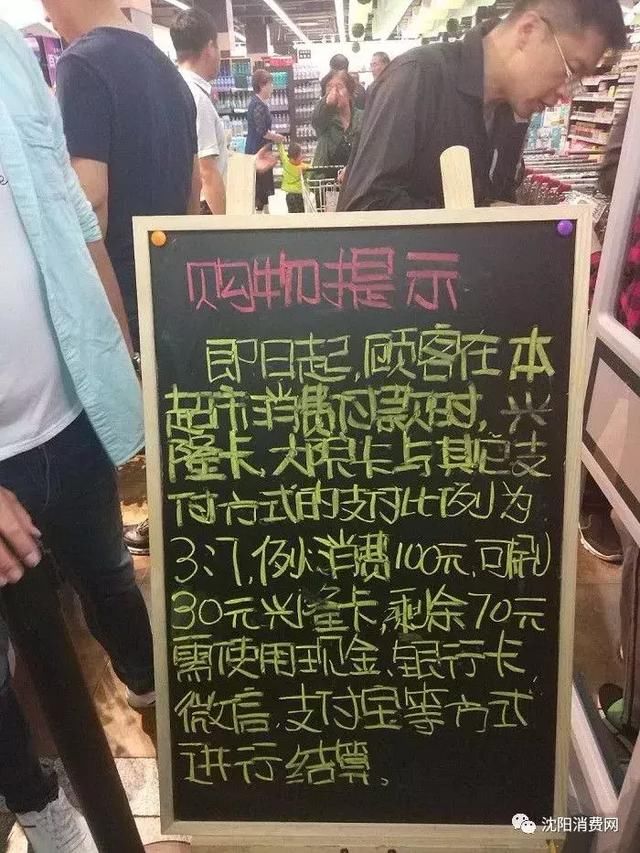 购物提示
即日起,顾客在本
超市消费付款时,兴
隆卡,与其它支
付方式的支付比例为
3:7,例如消费100元,可刷
30元兴隆卡,剩余70元
需使用现金、银行卡,
微信,支付宝等方式
进行结算。
沈阳消费网